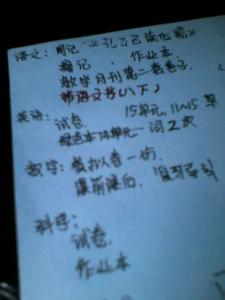 语文: 周记《孔乙己读后感》
摘记. 作业本
数学月刊第二卷卷子
带语文书(八下)
英语: 试卷. 15单元, 11~15
单元 词2次
数学: 模拟卷一份.
课前课后.
科学:
试卷.
作业本